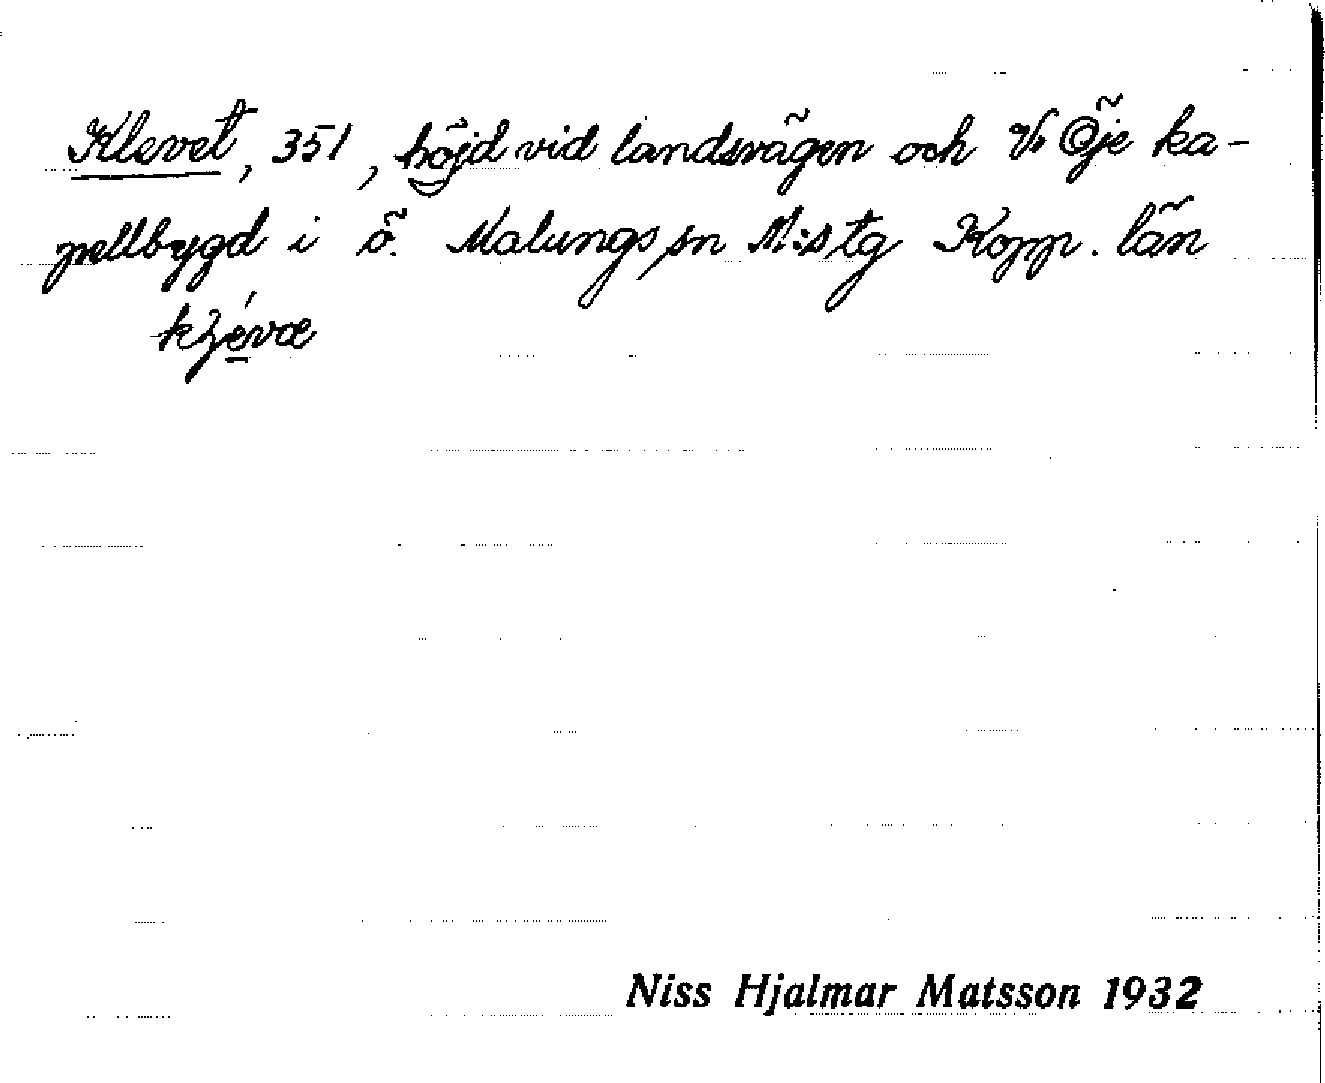 Klevet, 351, höjd vid landsvägen och V. Öje ka-
pellbygd i ö. Malungs sn M:s tg Kopp. län
Niss Hjalmar Matsson 1932